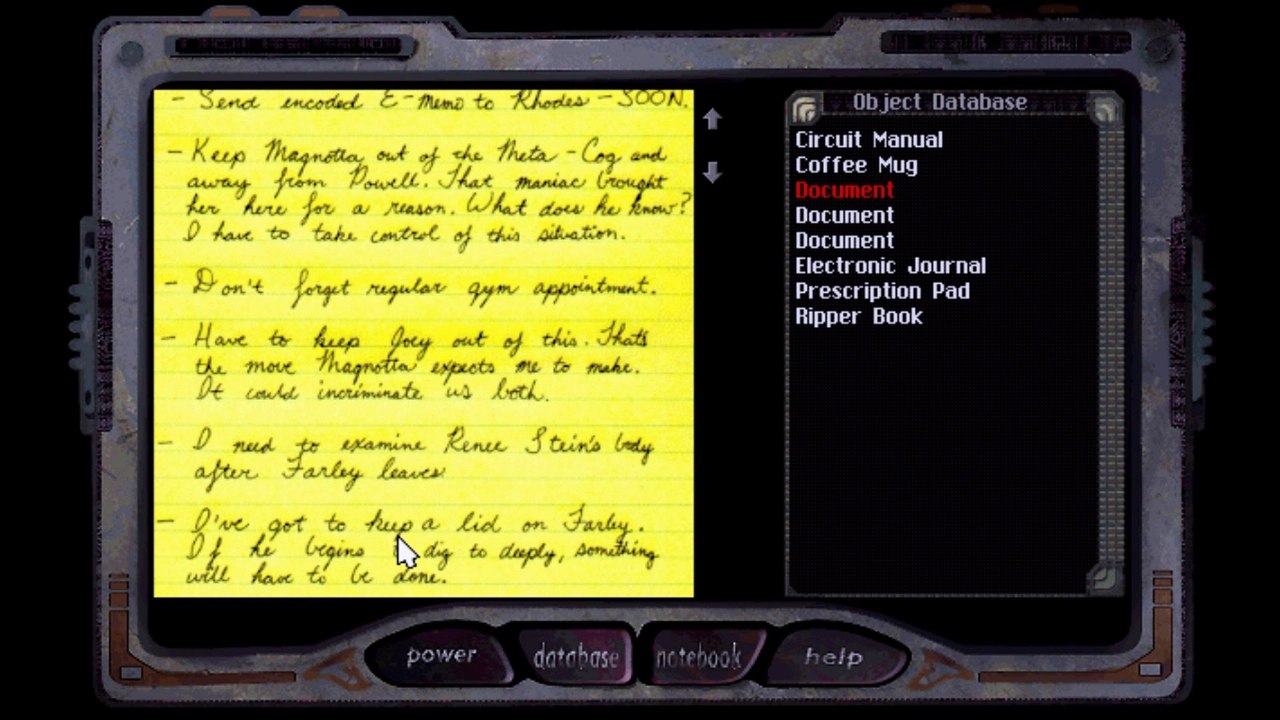 - Send encoded E-memo to Rhodes - SOON.
- Keep Magnotta out of the Meta-Cog and
away from Powell. That maniac brought
her here for a reason. What does he know?
I have to take control of this situation.
- Don't forget regular gym appointment.
- Have to keep Joey out of this. That's
the move Magnotta expects me to make.
It could incriminate us both.
- I need to examine Renee Stein's body
after Farley leaves.
- I've got to keep a lid on Farley.
If he begins dig to deeply, something
will have to be done.
Object Database
Circuit Manual
Coffee Mug
Document
Document
Document
Electronic Journal
Prescription Pad
Ripper Book
power
database
notebook
help